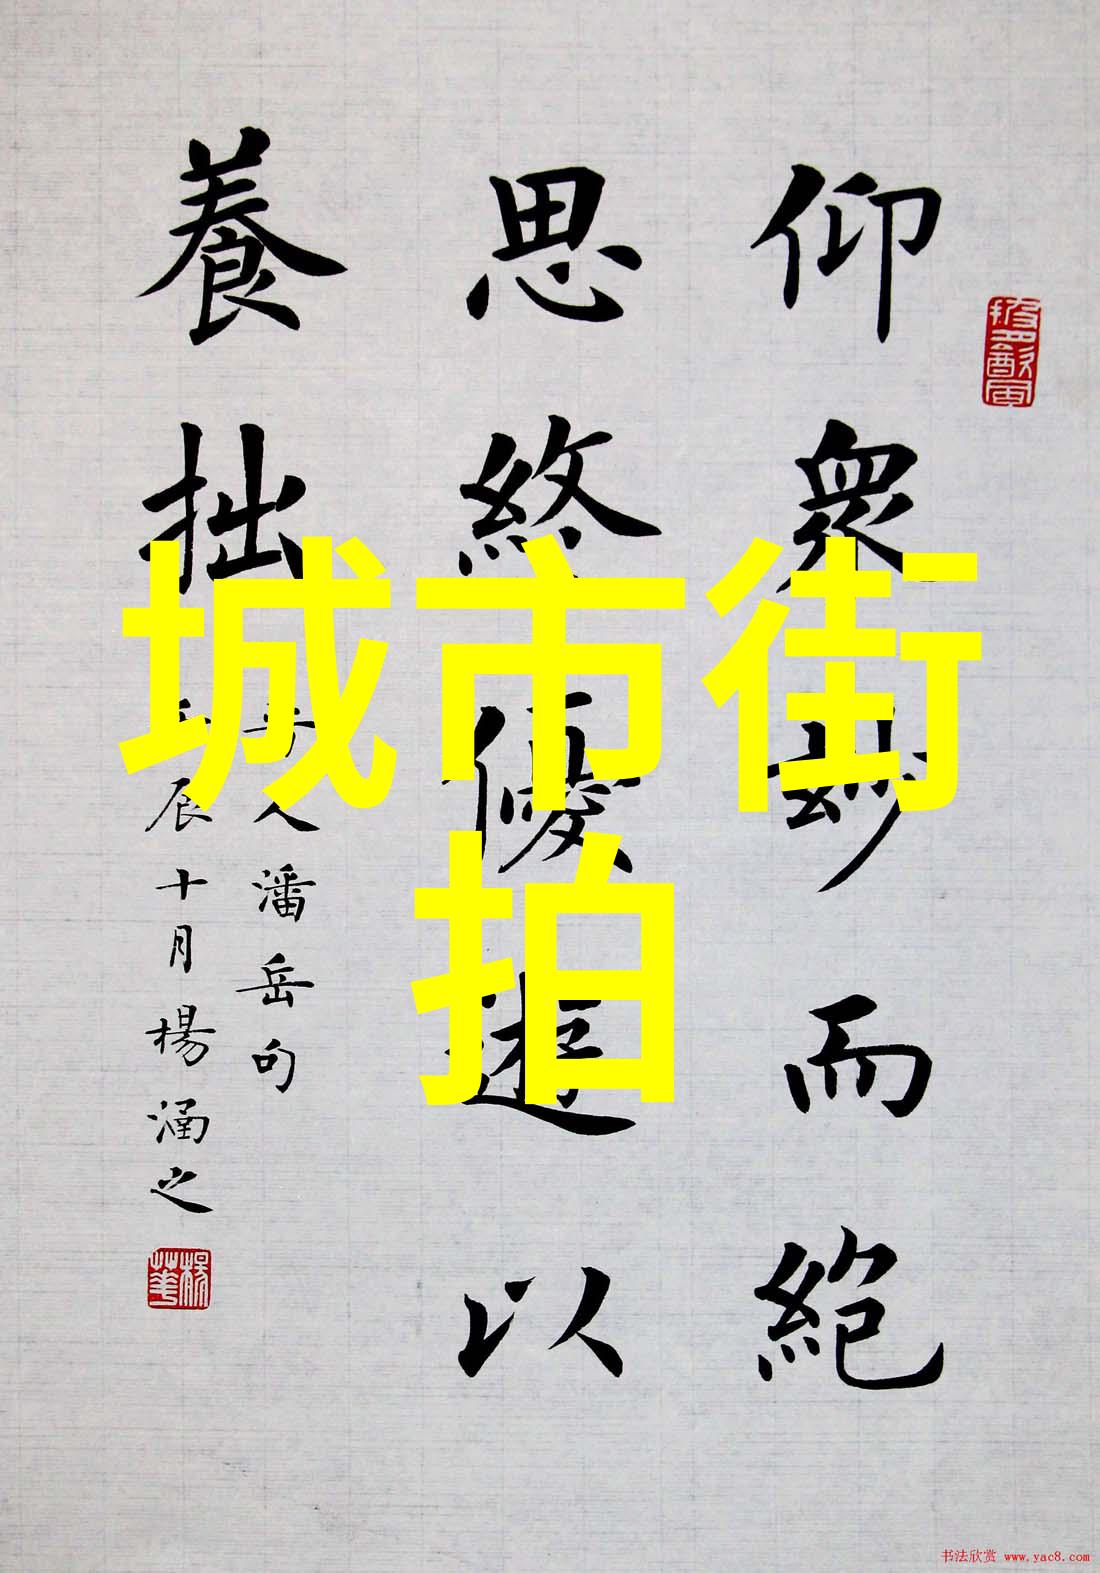 仰衆妙而絶
思終優遊以
養拙
晉人潘岳句
壬辰十月楊涵之
城市街
拍
书法欣赏 www.yac8.com